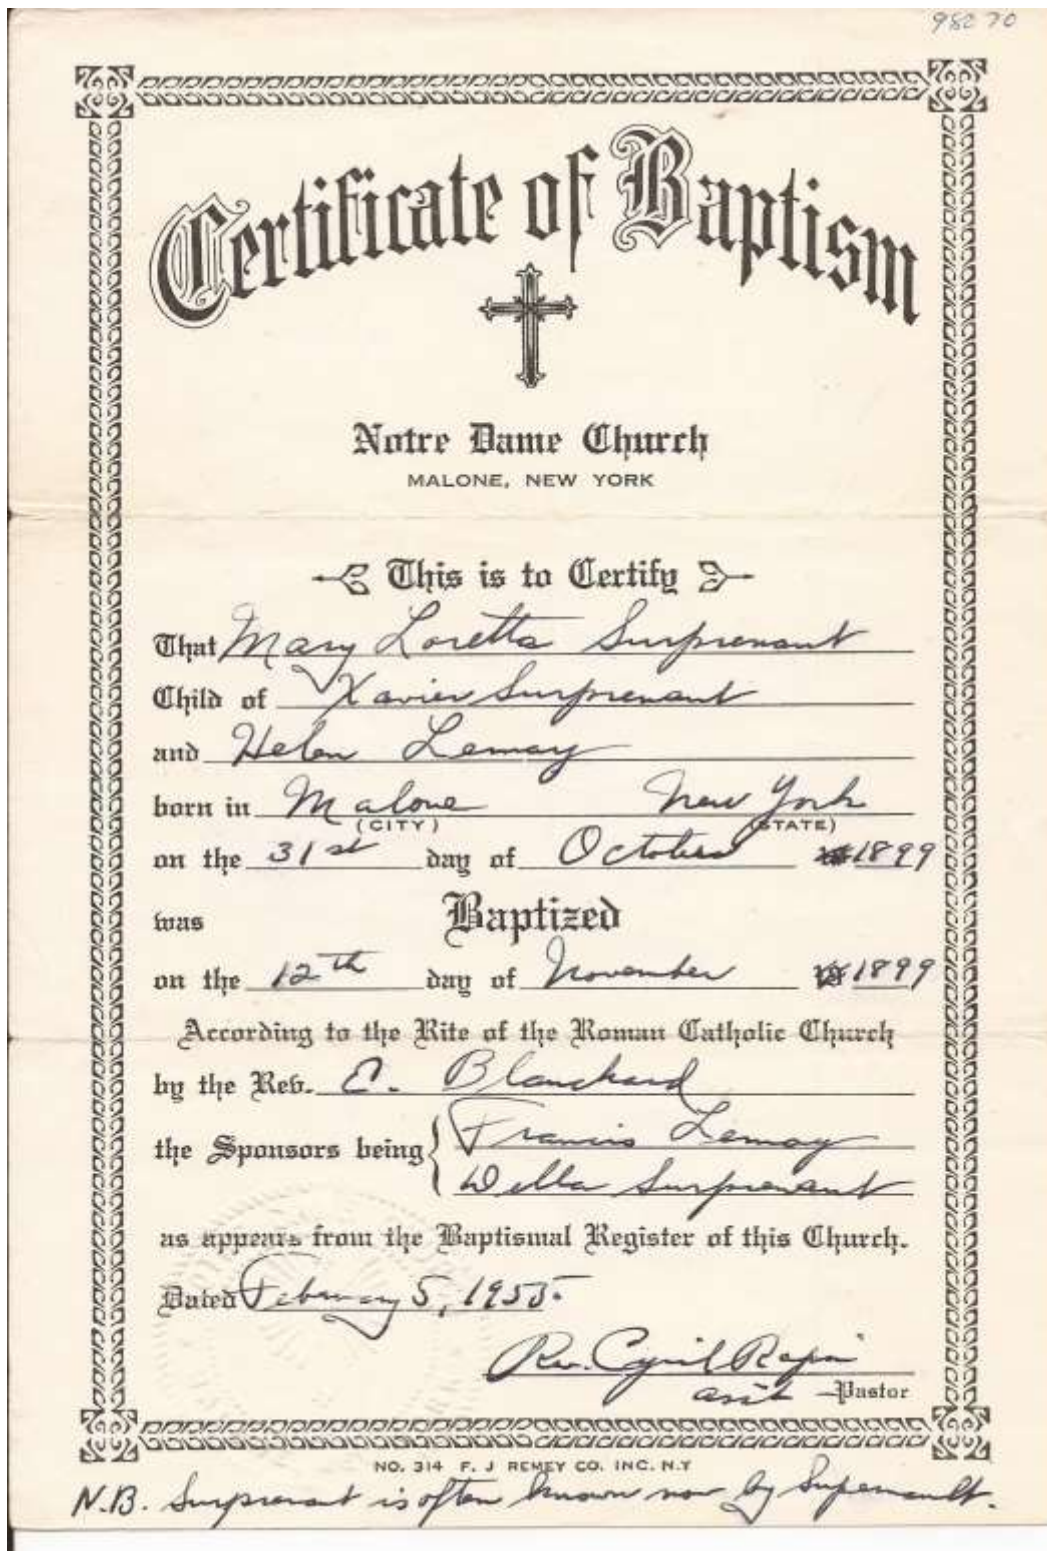 98270
Certificate of Baptism
Notre Dame Church
MALONE, NEW YORK
This is to Certify
That Mary Loretta Surprenant
Child of Xavier Surprenant
and Helen Lemay
born in Malone New York
(CITY) (STATE)
on the 31st day of October 1899
was Baptized
on the 12th day of November 1899
According to the Rite of the Roman Catholic Church
by the Rev. E. Blanchard
the Sponsors being Francis Lemay
Della Surprenant
as appears from the Baptismal Register of this Church.
Dated February 5, 1955.
Rev. Cyril
asst Pastor
NO. 314 F. J REMEY CO. INC. N.Y
N.B. Surprenant is often known now by Supernault.